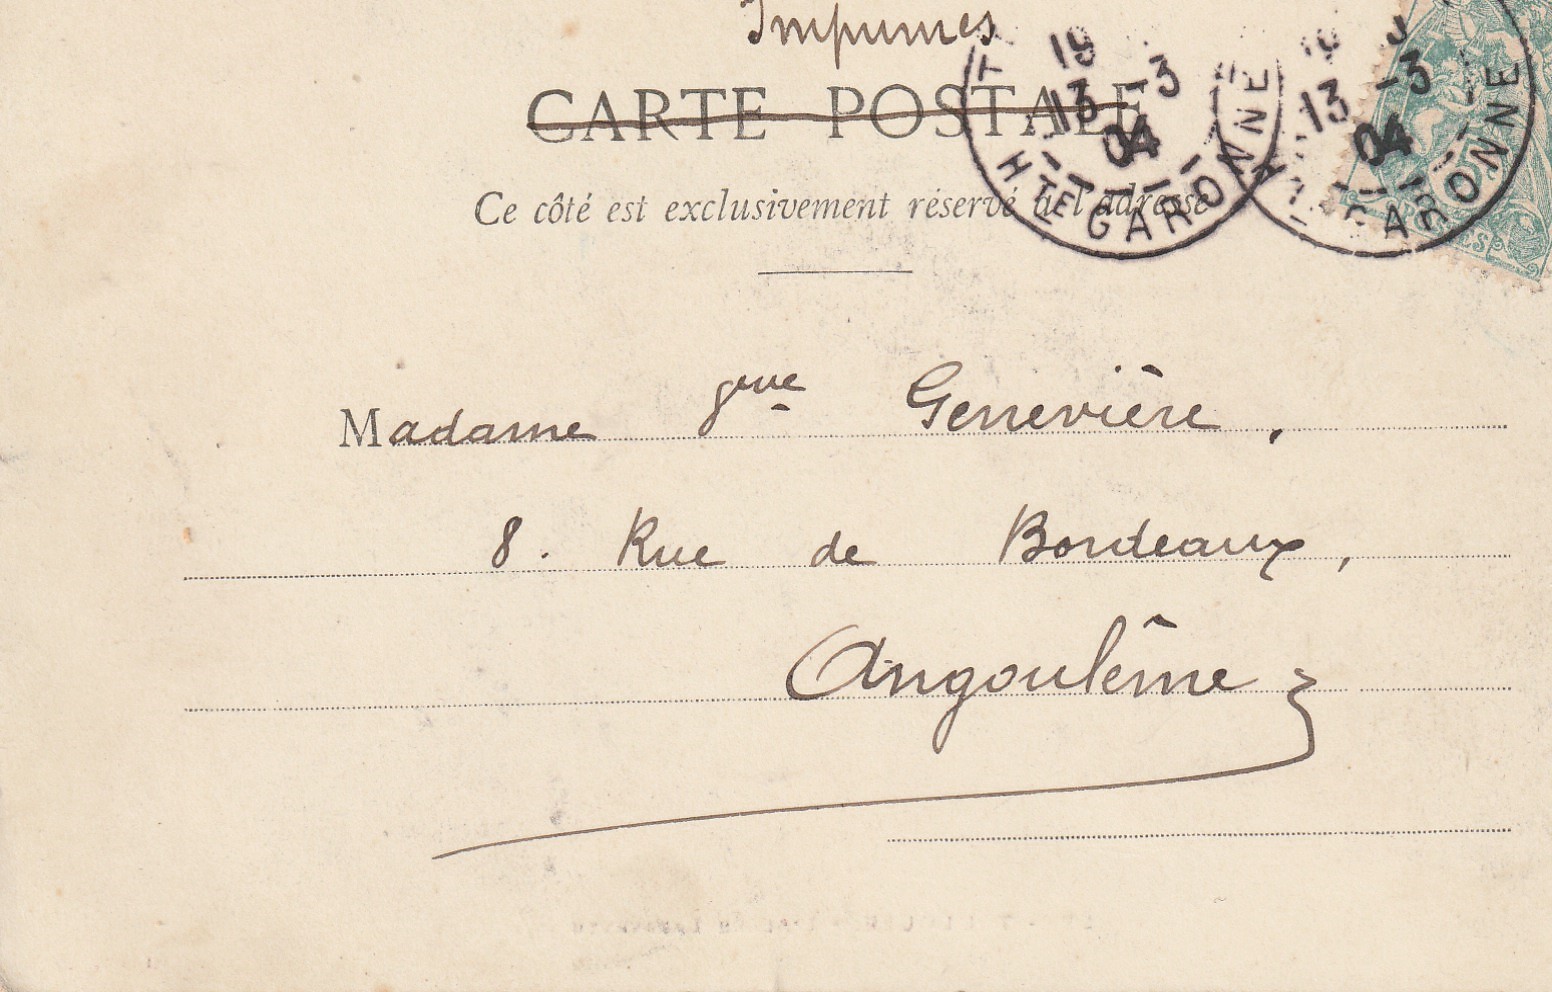 Imprimés
CARTE POSTALE
Ce côté est exclusivement réservé à l'adresse
19
13 -3
04
HTE GARONNE
13 -3
04
GARONNE
Madame Genevière,
8. Rue de Bordeaux,
Angoulême